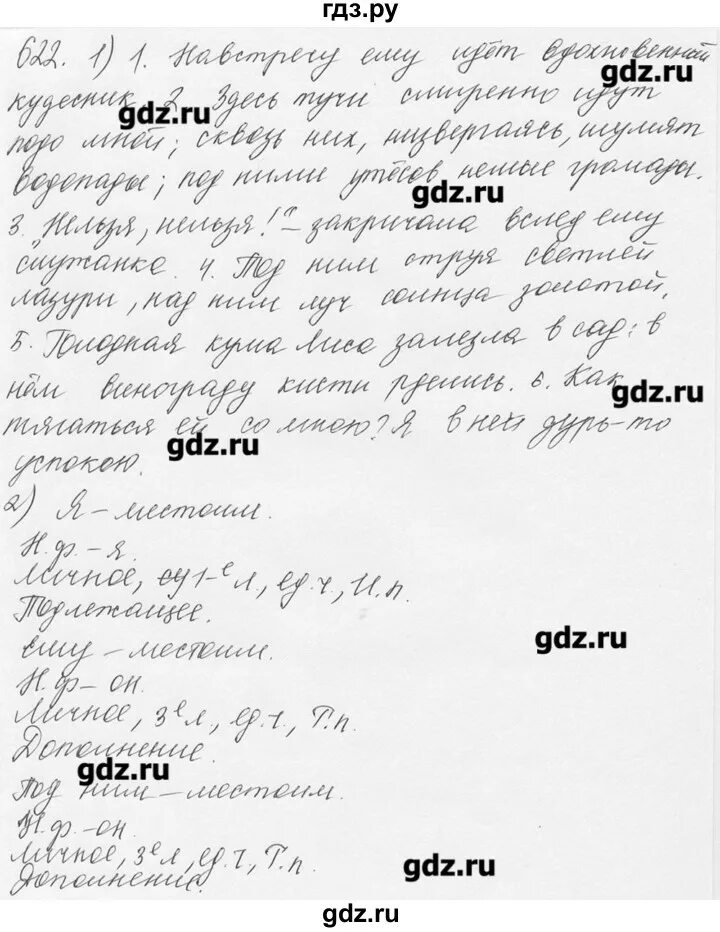 гдз.ру
622. 1) 1. Навстречу ему идёт вдохновенный
gdz.ru
кудесник. 2. Здесь тучи смиренно идут
gdz.ru
подо мной; сквозь них, низвергаясь, шумят
водопады; под ними утёсов немые громады.
gdz.ru
3. „Нельзя, нельзя!" – закричала вслед ему
служанка. 4. Под ним струя светлей
лазури, над ним луч солнца золотой.
5. Голодная кума Лиса залезла в сад: в
нём винограду кисти рделись. 6. Как
gdz.ru
тягаться ей со мною? Я в ней дурь-то
gdz.ru
успокою.
2) Я – местоим.
Н.ф. – я.
Личное, 1-е л, ед.ч, И.п.
Подлежащее.
gdz.ru
ему – местоим.
Н.ф – он.
Личное, 3е л., ед.ч., Т.п.
Дополнение.
gdz.ru
Под ним – местоим.
Н.ф. – он.
Личное, 3е л, ед.ч, Т.п.
gdz.ru
Дополнение.
gdz.ru